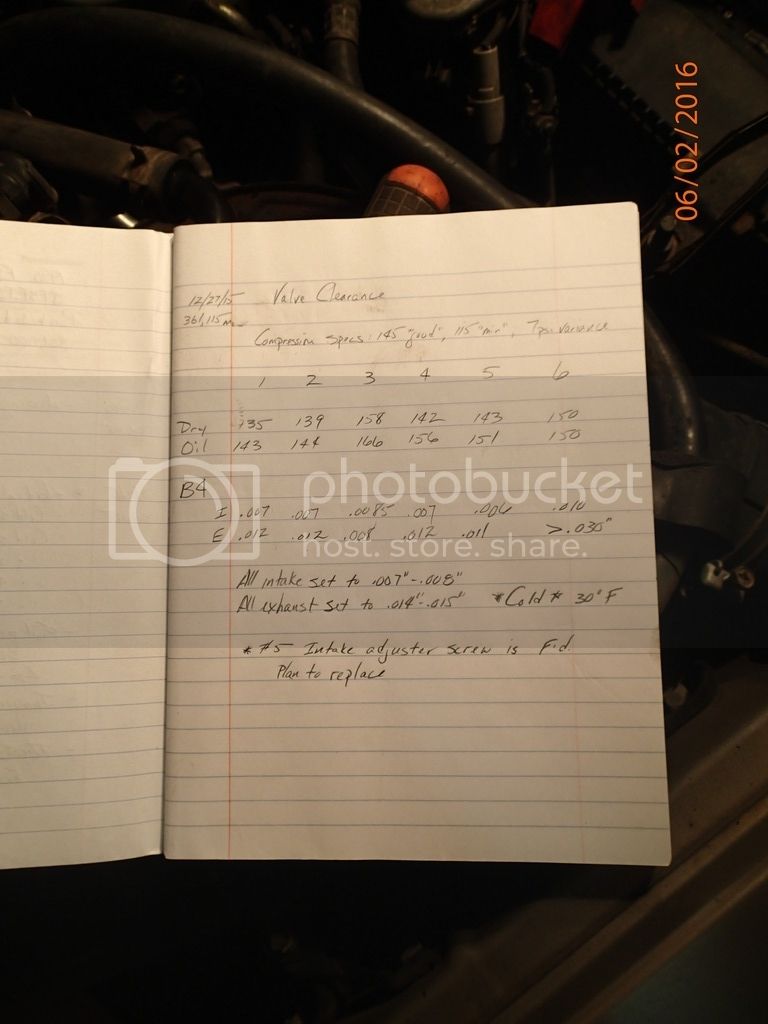 06/02/2016
12/27/15 Valve Clearance
361,115 mi
Compression specs: 145 "good", 115 "min", 7psi variance
1 2 3 4 5 6
Dry 135 139 158 142 143 150
Oil 143 144 166 156 151 150
B4
I .007 .007 .0085 .007 .006 .010
E .012 .012 .008 .012 .011 >.030"
All intake set to .007"-.008"
All exhaust set to .014"-.015" *Cold* 30°F
* #5 Intake adjuster screw is F'd.
Plan to replace
photobucket
host. store. share.